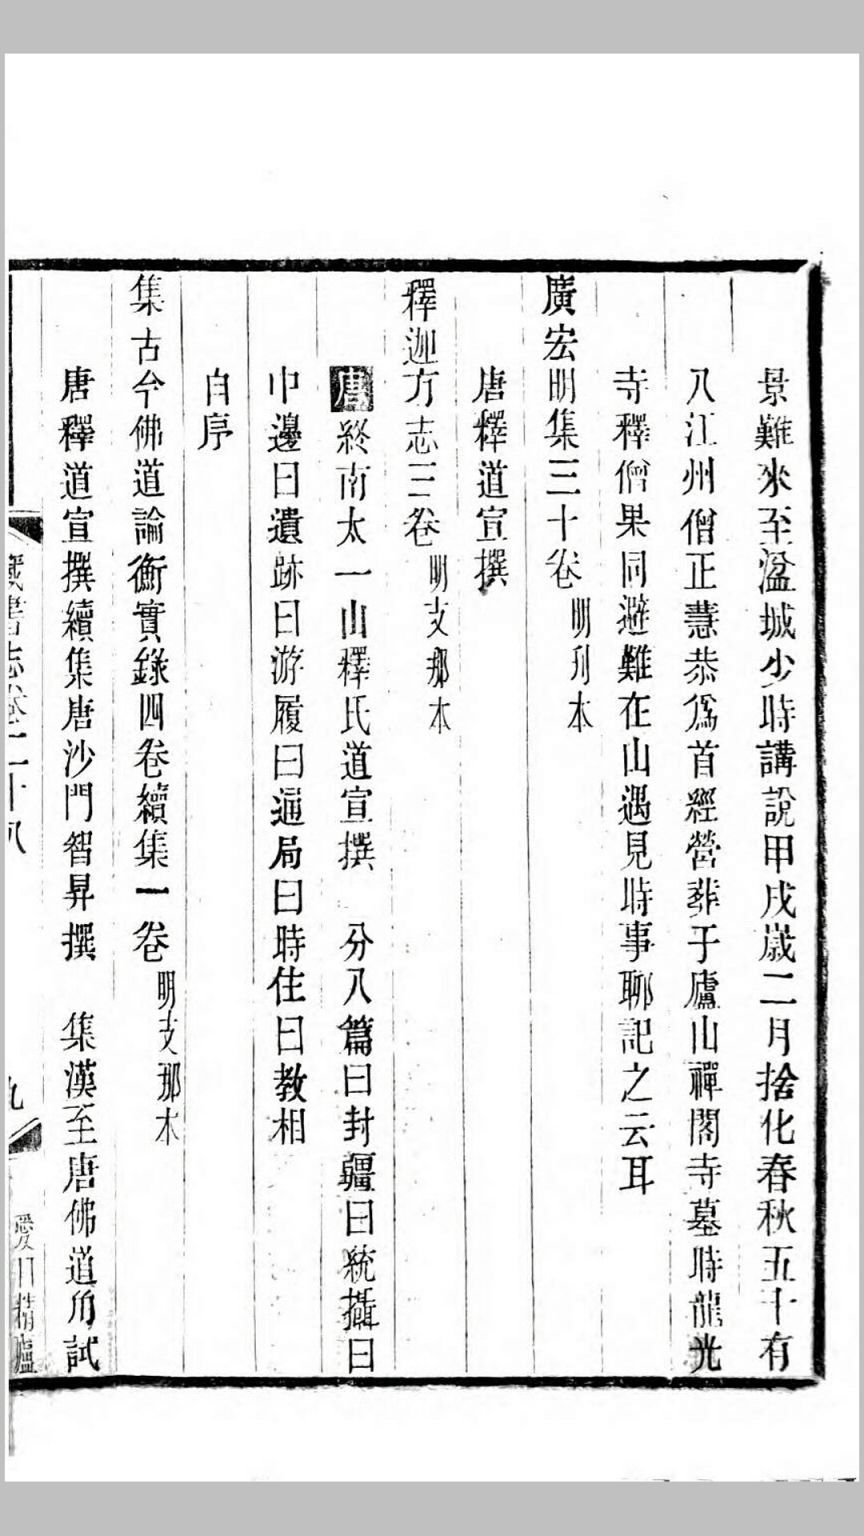 景難來至湓城少時講說甲戌歲二月捨化春秋五十有
八江州僧正慧恭爲首經營葬于廬山禪閣寺墓時龍光
寺釋僧果同避難在山遇見時事聊記之云耳
廣宏明集三十卷 明刋本
唐釋道宣撰
釋迦方志三卷 明支那本
唐 終南太一山釋氏道宣撰 分八篇曰封疆曰統攝曰
中邊曰遺跡曰游履曰通局曰時住曰教相
自序
集古今佛道論衡實錄四卷續集一卷 明支那本
唐釋道宣撰續集唐沙門智昇撰 集漢至唐佛道角試
藏書志卷二十八 九 愛日精廬